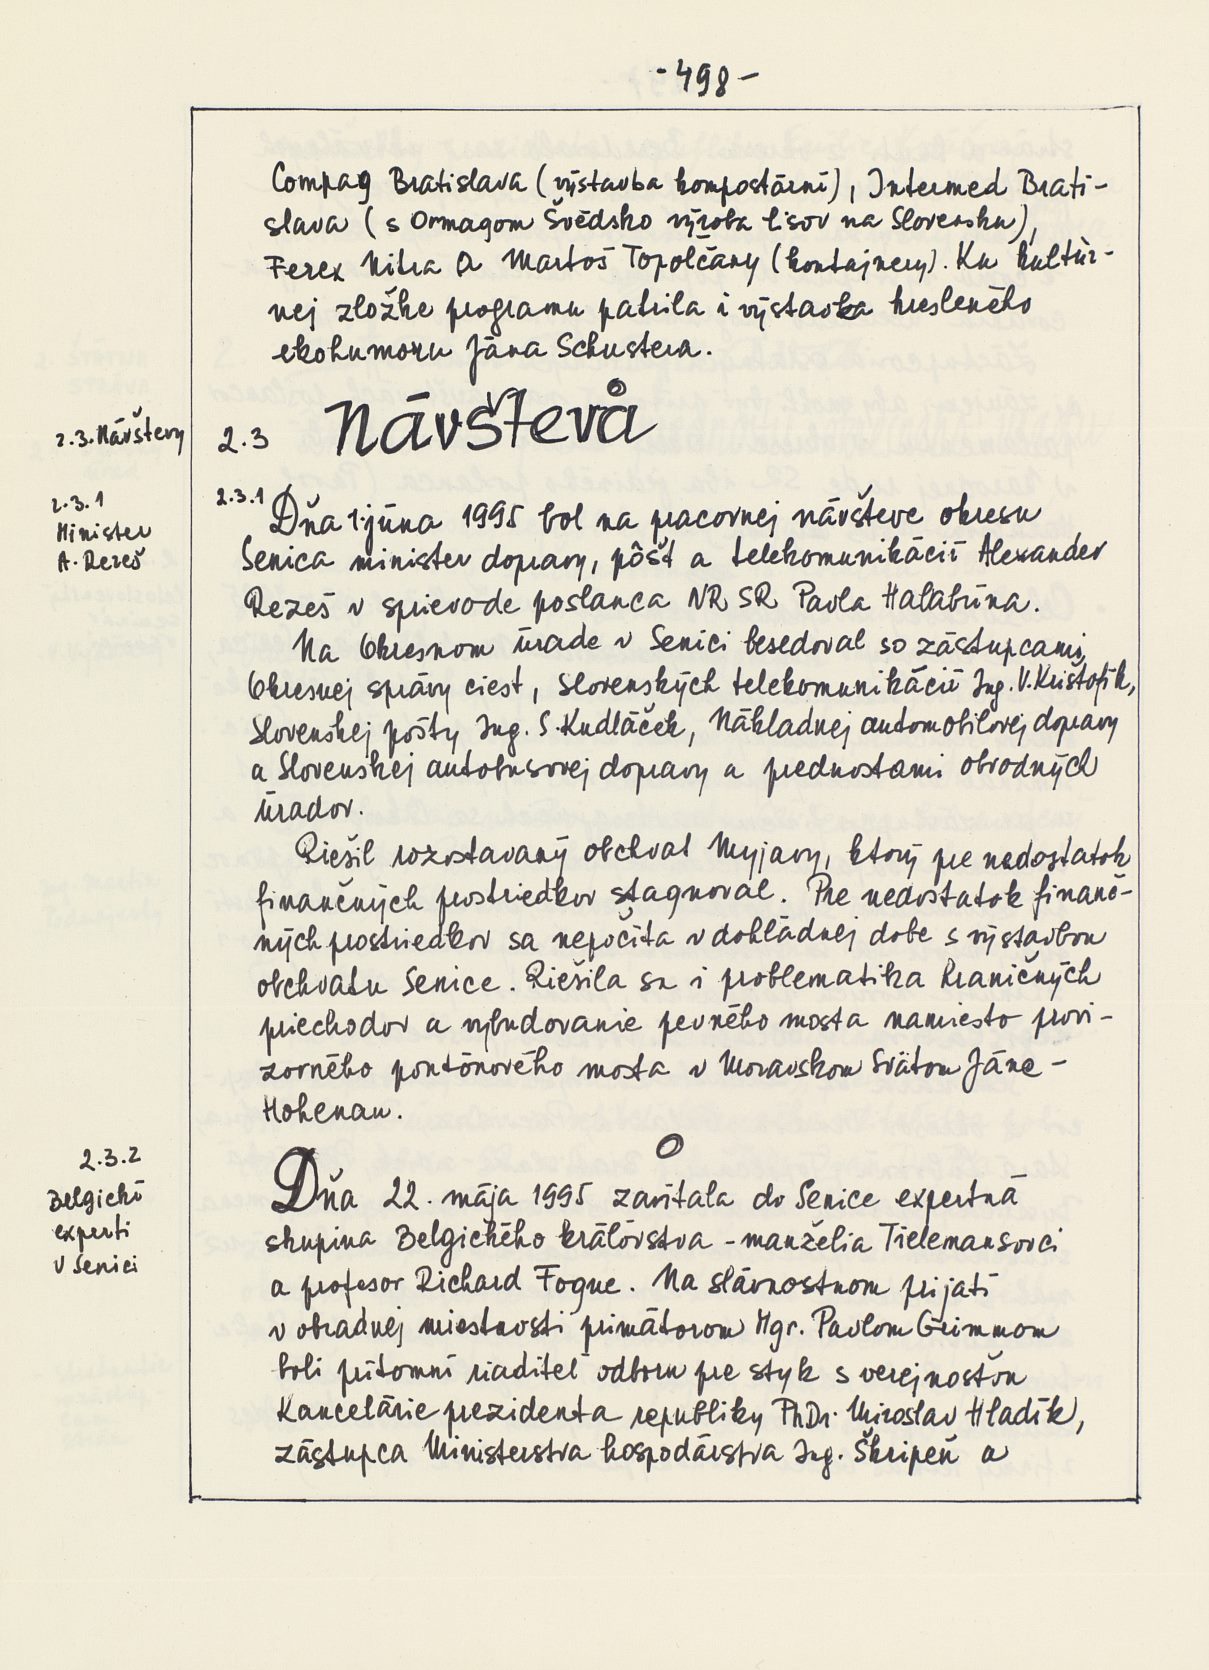 -498-
Compag Bratislava (výstavba kompostární), Intermed Brati-
slava (s Ormagom Švédsko výroba lisov na Slovensku),
Ferex Nitra a Martoš Topolčany (kontajnery). Ku kultúr-
nej zložke programu patrila i výstavka kresleného
ekohumoru Jána Schustera.
2.3. Návštevy
2.3 Návštevå
2.3.1
Minister
A. Rezeš
2.3.1 Dňa 1. júna 1995 bol na pracovnej návšteve okresu
Senica minister dopravy, pôšt a telekomunikácií Alexander
Rezeš v sprievode poslanca NR SR Pavla Halabrína.
Na Okresnom úrade v Senici besedoval so zástupcami
Okresnej správy ciest, Slovenských telekomunikácií Ing. V. Krištofík,
Slovenskej pošty Ing. S. Kudláček, Nákladnej automobilovej dopravy
a Slovenskej autobusovej dopravy a prednostami obvodných
úradov.
Riešil rozostavaný obchvat Myjavy, ktorý pre nedostatok
finančných prostriedkov stagnoval. Pre nedostatok finanč-
ných prostriedkov sa nepočíta v dohľadnej dobe s výstavbou
obchvatu Senice. Riešila sa i problematika hraničných
priechodov a vybudovanie pevného mosta namiesto provi-
zorného pontónového mosta v Moravskom Svätom Jáne -
Hohenau.
2.3.2
Belgickí
experti
v Senici
Dňa 22. mája 1995 zavítala do Senice expertná
skupina Belgického kráľovstva - manželia Tielemansovci
a profesor Richard Fogue. Na slávnostnom prijatí
v obradnej miestnosti primátorom Mgr. Pavlom Grimmom
boli prítomní riaditeľ odboru pre styk s verejnosťou
Kancelárie prezidenta republiky PhDr. Miroslav Hladík,
zástupca Ministerstva hospodárstva Ing. Škripeň a